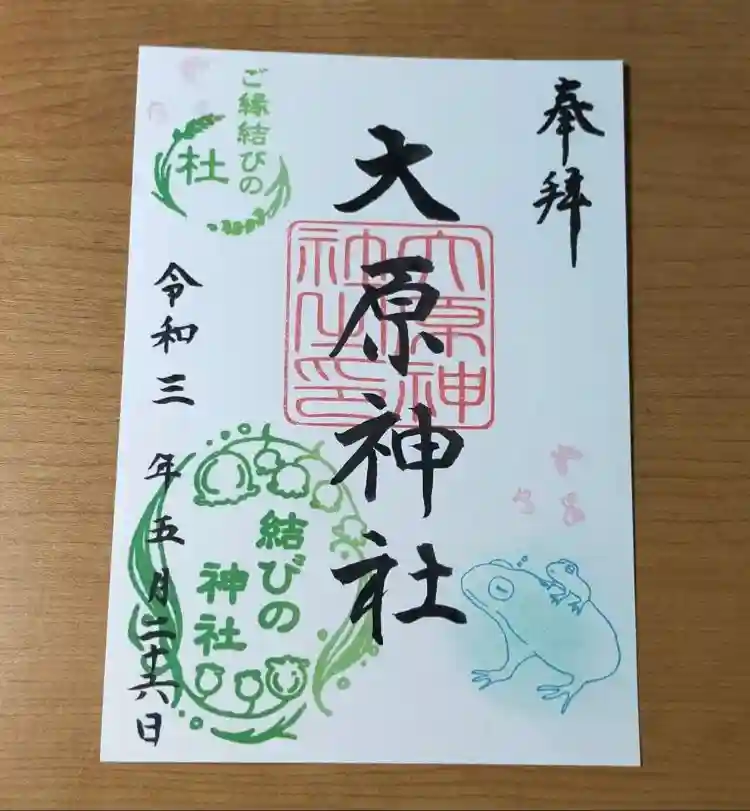 奉拝
大原神社
大原神
社之印
ご縁結びの
杜
結びの
神社
令和三年五月二十六日